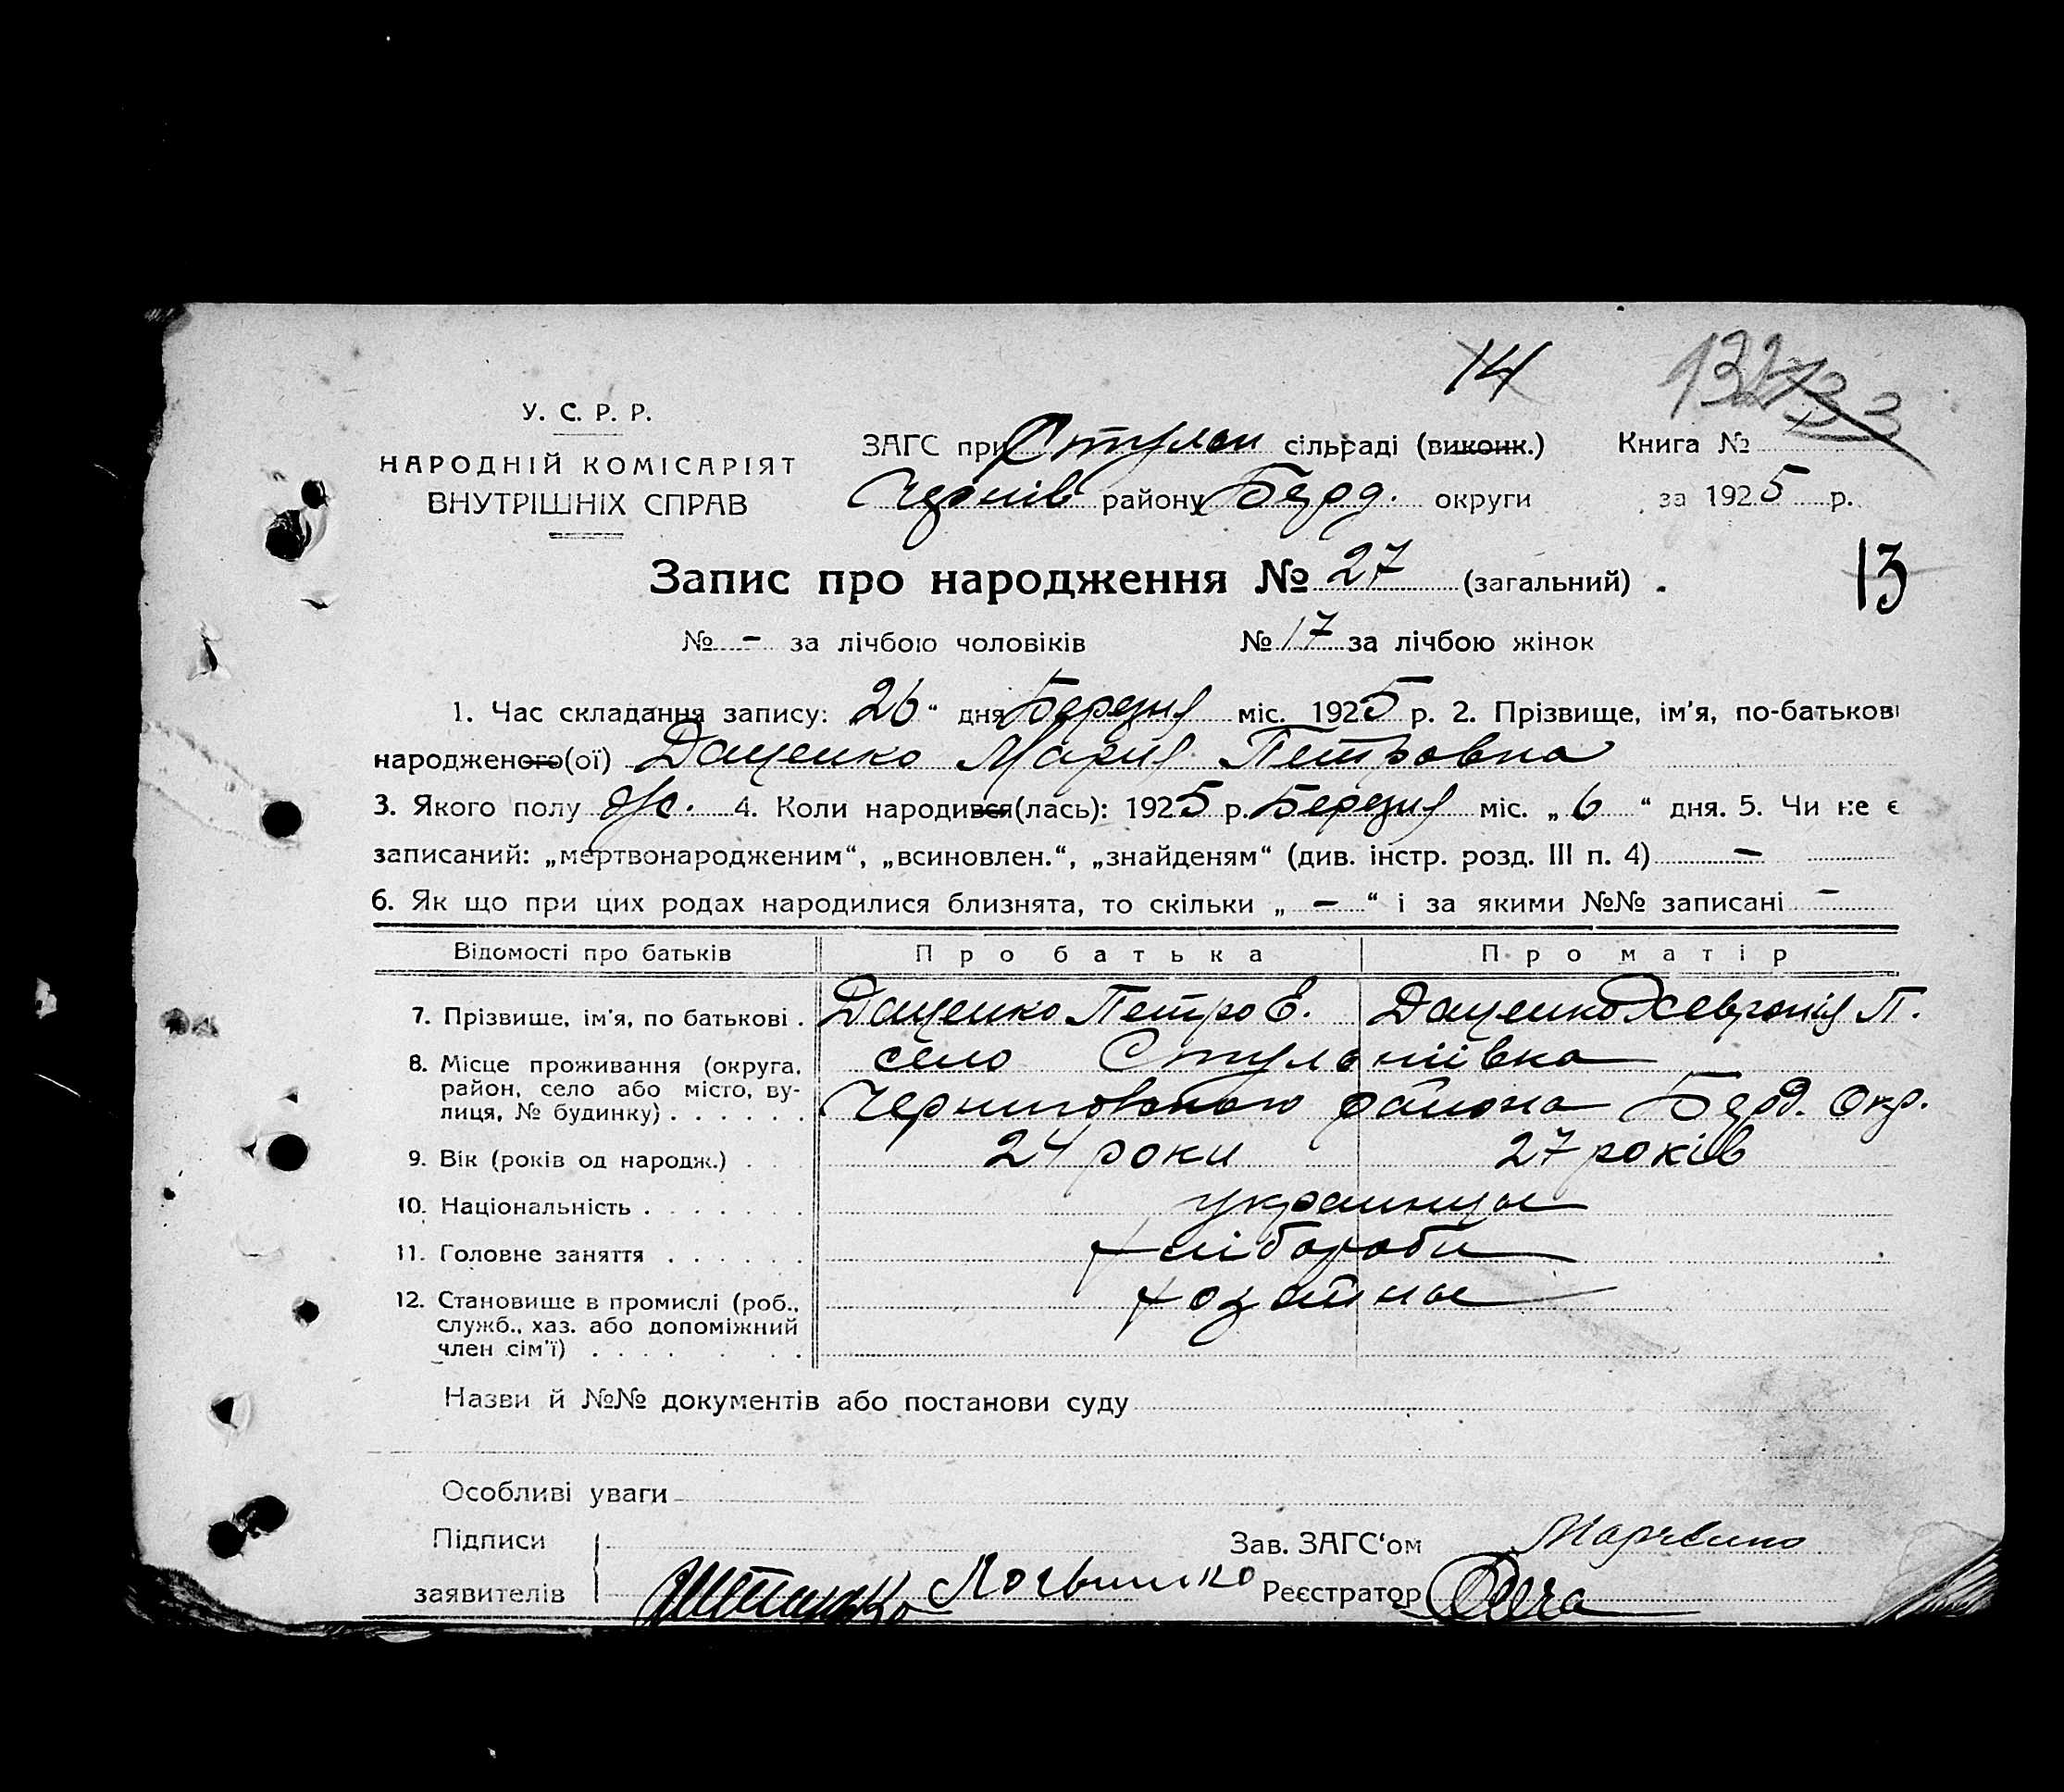 14
132 133
У. С. Р. Р.
НАРОДНІЙ КОМІСАРІЯТ
ВНУТРІШНІХ СПРАВ
ЗАГС при Стулон сільраді (виконк.) Книга №
Чернів району Берд. округи за 1925 р.
Запис про народження № 27 (загальний)
13
№ - за лічбою чоловіків № 17 за лічбою жінок
1. Час складання запису: 26 " дня Березня міс. 1925 р. 2. Прізвище, ім'я, по-батькові
народженого(ої) Даценко Мария Петровна
3. Якого полу ж. 4. Коли народився(лась): 1925 р. Березня міс. „ 6 " дня. 5. Чи не є
записаний: „мертвонародженим“, „всиновлен.“, „знайденям“ (див. інстр. розд. III п. 4) —
6. Як що при цих родах народилися близнята, то скільки „ — “ і за якими №№ записані —
Відомості про батьків Про батька Про матір
7. Прізвище, ім'я, по батькові . Даценко Петро Е. Даценко Хевронія П.
8. Місце проживання (округа, село Стульніївка
район, село або місто, ву-
лиця, № будинку) . . . . . . Черниговского района Берд. Окр.
9. Вік (років од народж.) . 24 роки 27 років
10. Національність . . . . . . . украинцы
11. Головне заняття . . . . . . хлібороби
12. Становище в промислі (роб., хозяйны
служб., хаз. або допоміжний
член сім'ї) . . . . . . .
Назви й №№ документів або постанови суду
Особливі уваги
Підписи Зав. ЗАГС‘ом Марченко
заявителів Логвиненко Реєстратор